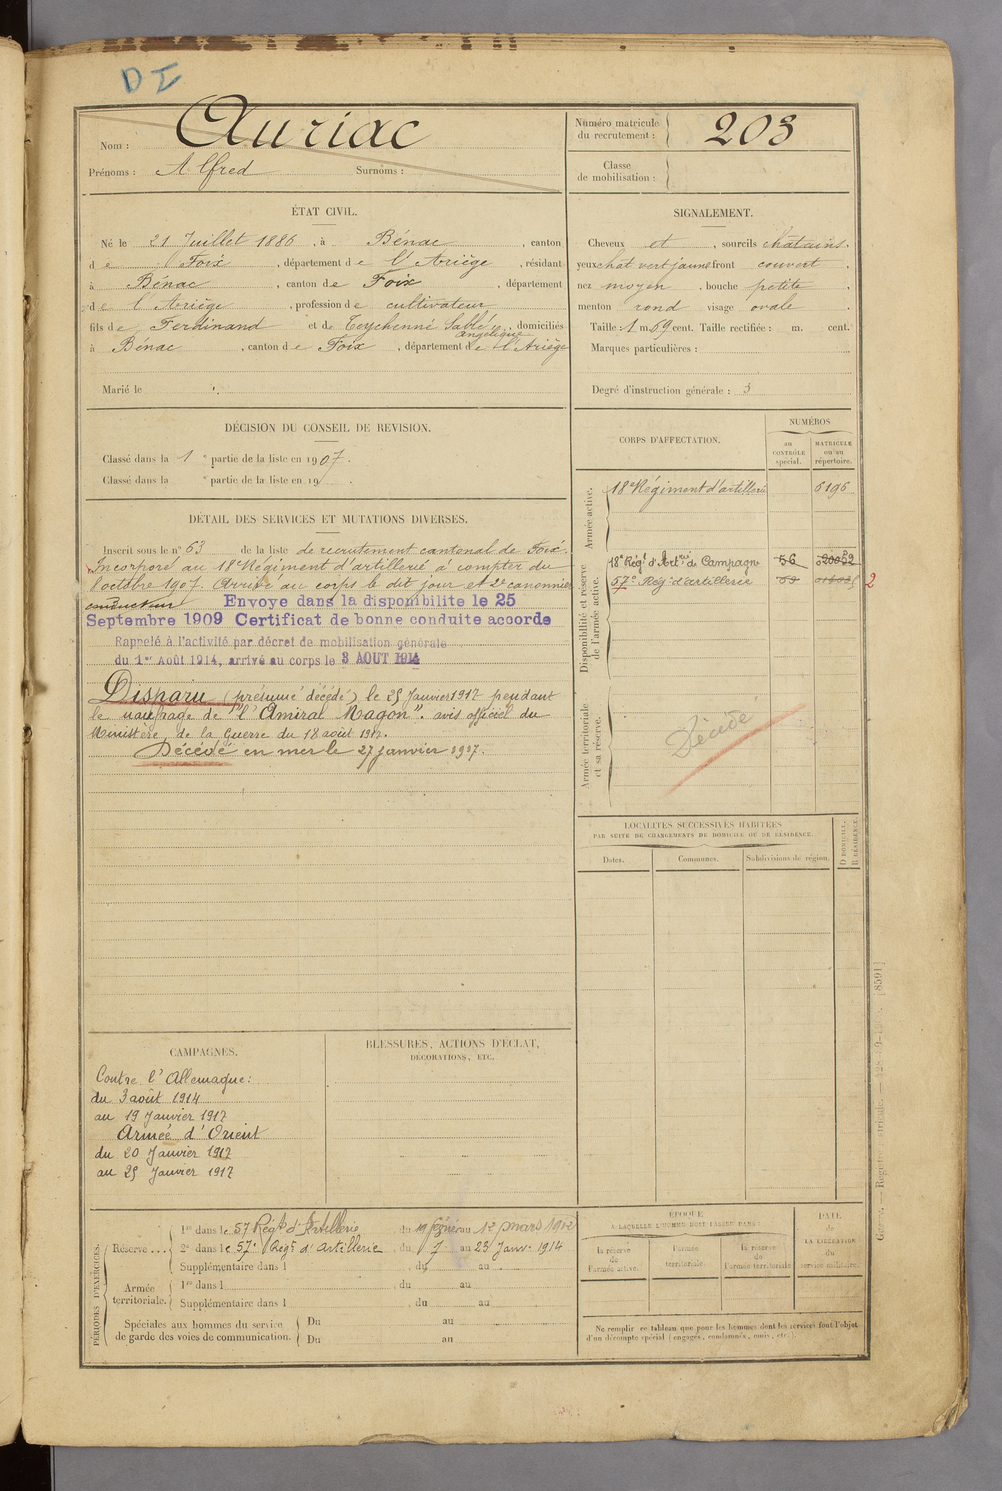 DI
Nom : Auriac
Prénoms : Alfred Surnoms :
Numéro matricule
du recrutement : 203
Classe
de mobilisation :
ÉTAT CIVIL.
Né le 21 Juillet 1886, à Bénac, canton
de Foix, département de l'Ariège, résidant
à Bénac, canton de Foix, département
de l'Ariège, profession de cultivateur
fils de Ferdinand et de Teychenné Sablé, domiciliés
Angélique
à Bénac, canton de Foix, département de l'Ariège
Marié le
SIGNALEMENT.
Cheveux et, sourcils châtains.
yeux chat vert jaune front couvert,
nez moyen, bouche petite,
menton rond visage ovale.
Taille : 1 m. 69 cent. Taille rectifiée : m. cent.
Marques particulières :
Degré d'instruction générale : 3
DÉCISION DU CONSEIL DE REVISION.
Classé dans la 1e partie de la liste en 1907.
Classé dans la e partie de la liste en 19
DÉTAIL DES SERVICES ET MUTATIONS DIVERSES.
Inscrit sous le n° 63 de la liste de recrutement cantonal de Foix.
Incorporé au 18e Régiment d'artillerie à compter du
8 octobre 1907. Arrivé au corps le dit jour et 2e canonnier
conducteur Envoye dans la disponibilite le 25
Septembre 1909 Certificat de bonne conduite accorde
Rappelé à l'activité par décret de mobilisation générale
du 1er Août 1914, arrivé au corps le 3 AOUT 1914
Disparu (présumé décédé) le 25 Janvier 1917 pendant
le naufrage de "l'Amiral Magon". avis officiel du
Ministère de la Guerre du 18 août 1917.
Décédé en mer le 27 janvier 1917.
CORPS D'AFFECTATION.
NUMÉROS
au
CONTRÔLE
spécial.
MATRICULE
ou au
répertoire.
Armée active.
18e Régiment d'artillerie 6196
Disponibilité et réserve
de l'armée active.
18e Régt d'Artrie de Campagne 56
57e Reg. d'artillerie 2
Armée territoriale
et sa réserve.
Décédé
LOCALITÉS SUCCESSIVES HABITÉES
PAR SUITE DE CHANGEMENTS DE DOMICILE OU DE RÉSIDENCE.
Dates. Communes. Subdivisions de région. D DOMICILE. R RÉSIDENCE.
CAMPAGNES.
Contre l'Allemagne :
du 3 août 1914
au 19 Janvier 1917
Armée d'Orient
du 20 Janvier 1917
au 25 Janvier 1917
BLESSURES, ACTIONS D'ÉCLAT,
DÉCORATIONS, ETC.
PÉRIODES D'EXERCICES.
Réserve....
1re dans le 57 Régt d'Artillerie du 19 février au 12 mars 1912
2e dans le 57e Regt d'artillerie du 7 au 23 Janv. 1914
Supplémentaire dans l du au
Armée
territoriale.
1re dans l du au
Supplémentaire dans l du au
Spéciales aux hommes du service
de garde des voies de communication.
Du au
Du au
ÉPOQUE
À LAQUELLE L'HOMME DOIT PASSER DANS :
la réserve
de
l'armée active.
l'armée
territoriale.
la réserve
de
l'armée territoriale
DATE
de
LA LIBÉRATION
du
service militaire.
Ne remplir ce tableau que pour les hommes dont les services font l'objet
d'un décompte spécial (engagés, condamnés, omis, etc.).